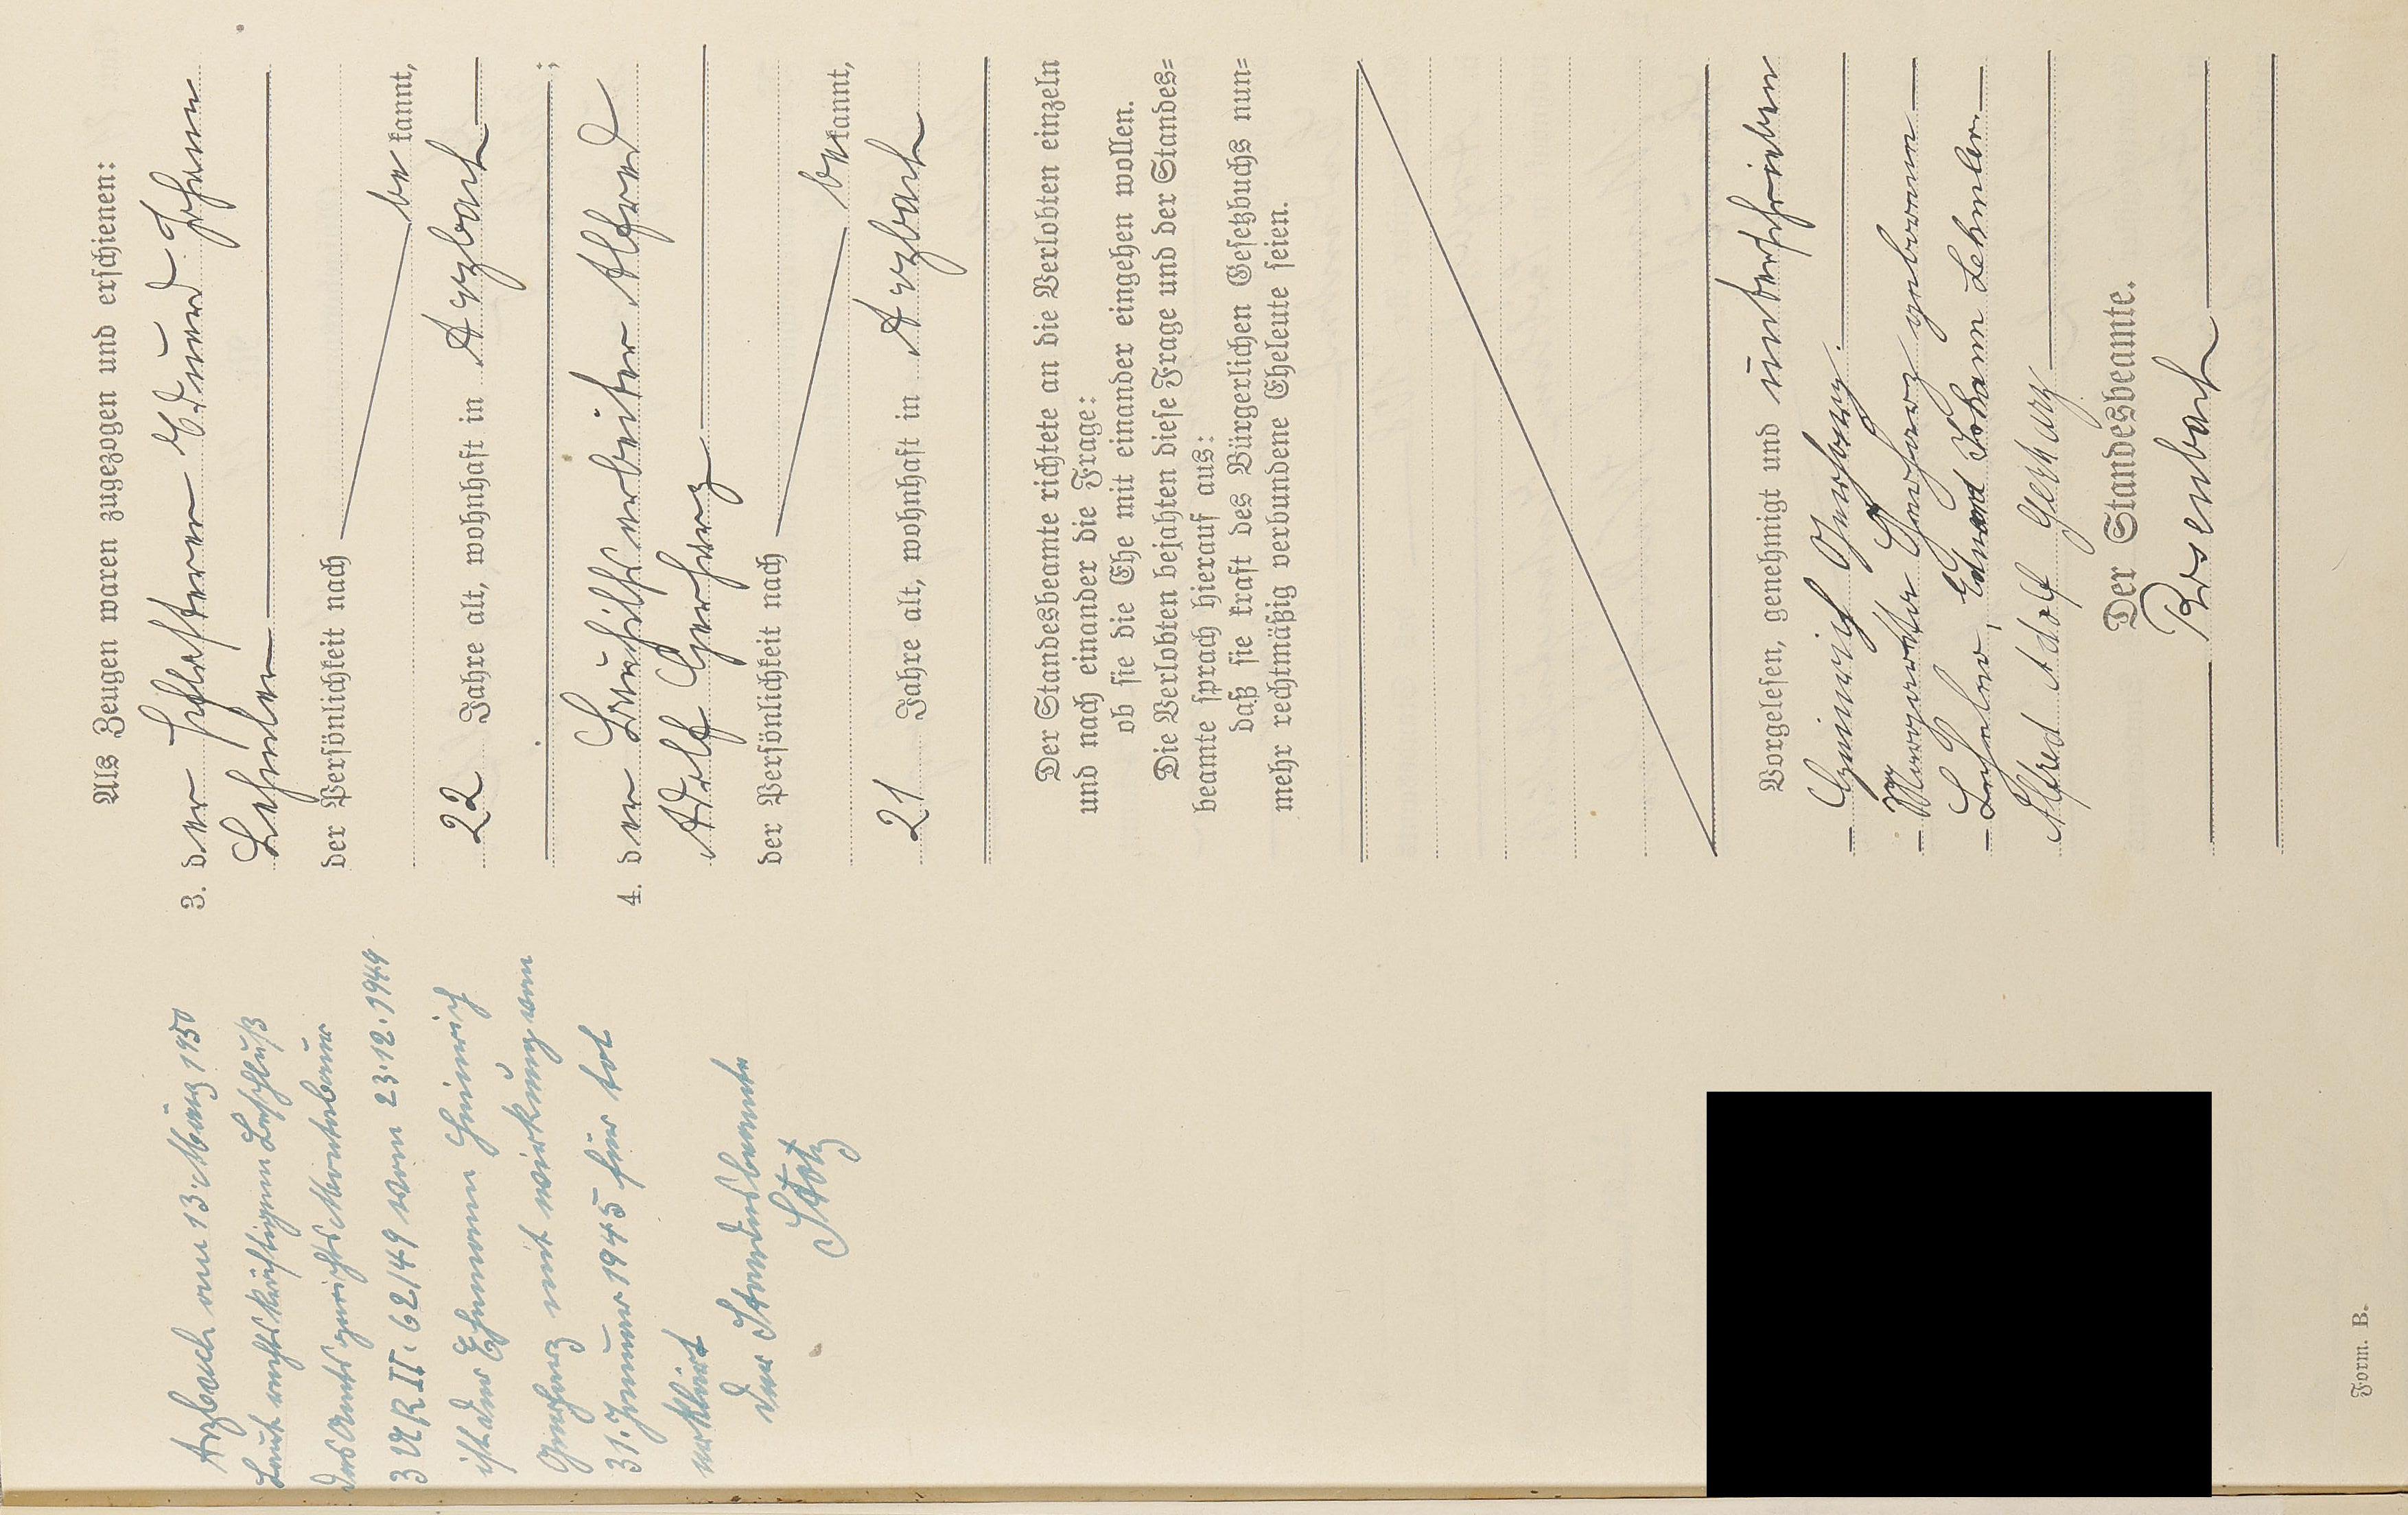 Als Zeugen waren zugezogen und erschienen:
3. der Schlosserer Eduard Johann
Lehnler
der Persönlichkeit nach
be kannt,
22 Jahre alt, wohnhaft in Arzbach
;
4. der Bauhilfsarbeiter Alfred
Adolf Gerharz
der Persönlichkeit nach be kannt,
21 Jahre alt, wohnhaft in Arzbach
Der Standesbeamte richtete an die Verlobten einzeln
und nach einander die Frage:
ob sie die Ehe mit einander eingehen wollen.
Die Verlobten bejahten diese Frage und der Standes=
beamte sprach hierauf aus:
daß sie kraft des Bürgerlichen Gesetzbuchs nun=
mehr rechtmäßig verbundene Eheleute seien.
Vorgelesen, genehmigt und unterschrieben
Heinrich Gerharz.
Margaretha Gerharz geborene
Eduard Johann Lehnler
Alfred Adolf Gerharz
Der Standesbeamte.
Rosenbach
Arzbach am 13. März 1950
Laut rechtskräftigem Beschluß
des Amtsgerichts Montabaur
3 UR II. 62/49 vom 23.12.1949
ist der Ehemann Heinrich
Gerharz mit wirkung vom
31. Januar 1945 für tot
erklärt
Der Standesbeamte
Stotz
Form. B.